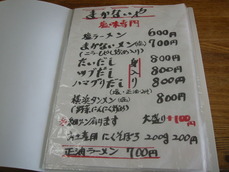 まかないや
塩味専門
塩ラーメン 600円
まかないメン(塩) 700円
だいだし 身入り 800円
ツブだし 800円
ハマグリだし 800円
横浜タンメン(塩) 800円
(野菜にんにく入り)
※細メン有ります 大盛り+100円
お土産用 にんにくそぼろ 200g 200円
正油ラーメン 700円